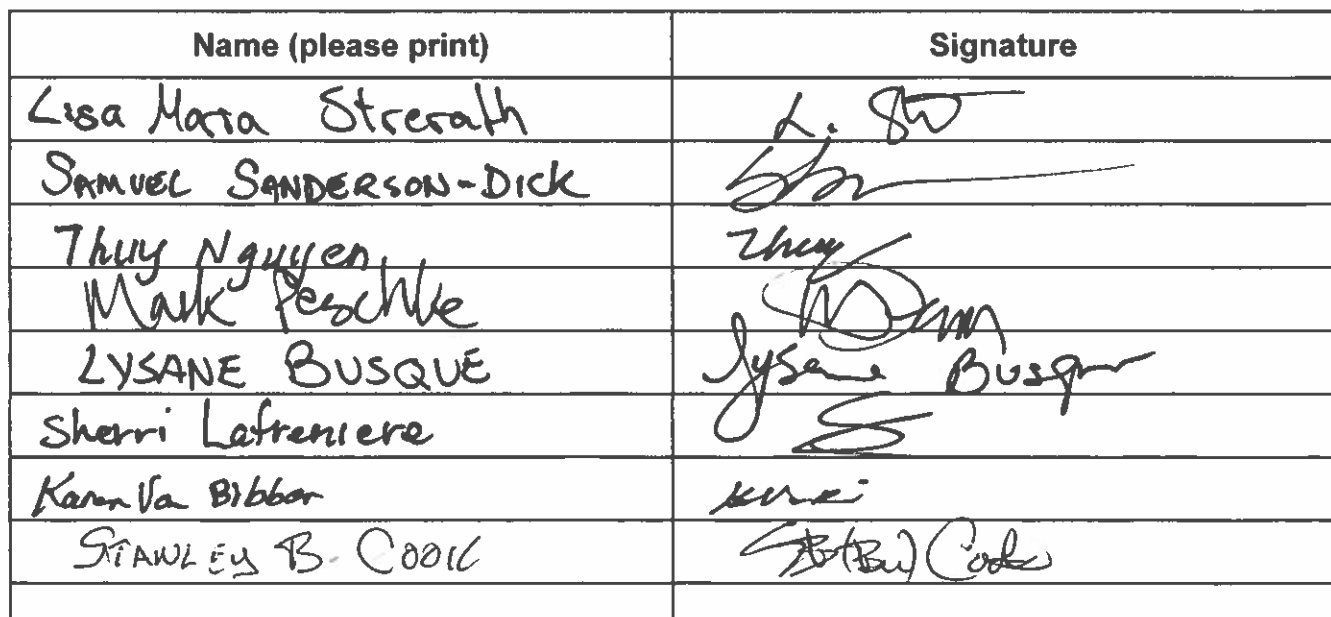 Name (please print) Signature
Lisa Maria Strerath L.
SAMUEL SANDERSON-DICK
Thuy Nguyen Thuy
Mark Peschke
LYSANE BUSQUE Lysane Busque
Sherri Lafreniere
Karen Van Bibber
STANLEY B. COOK Cook